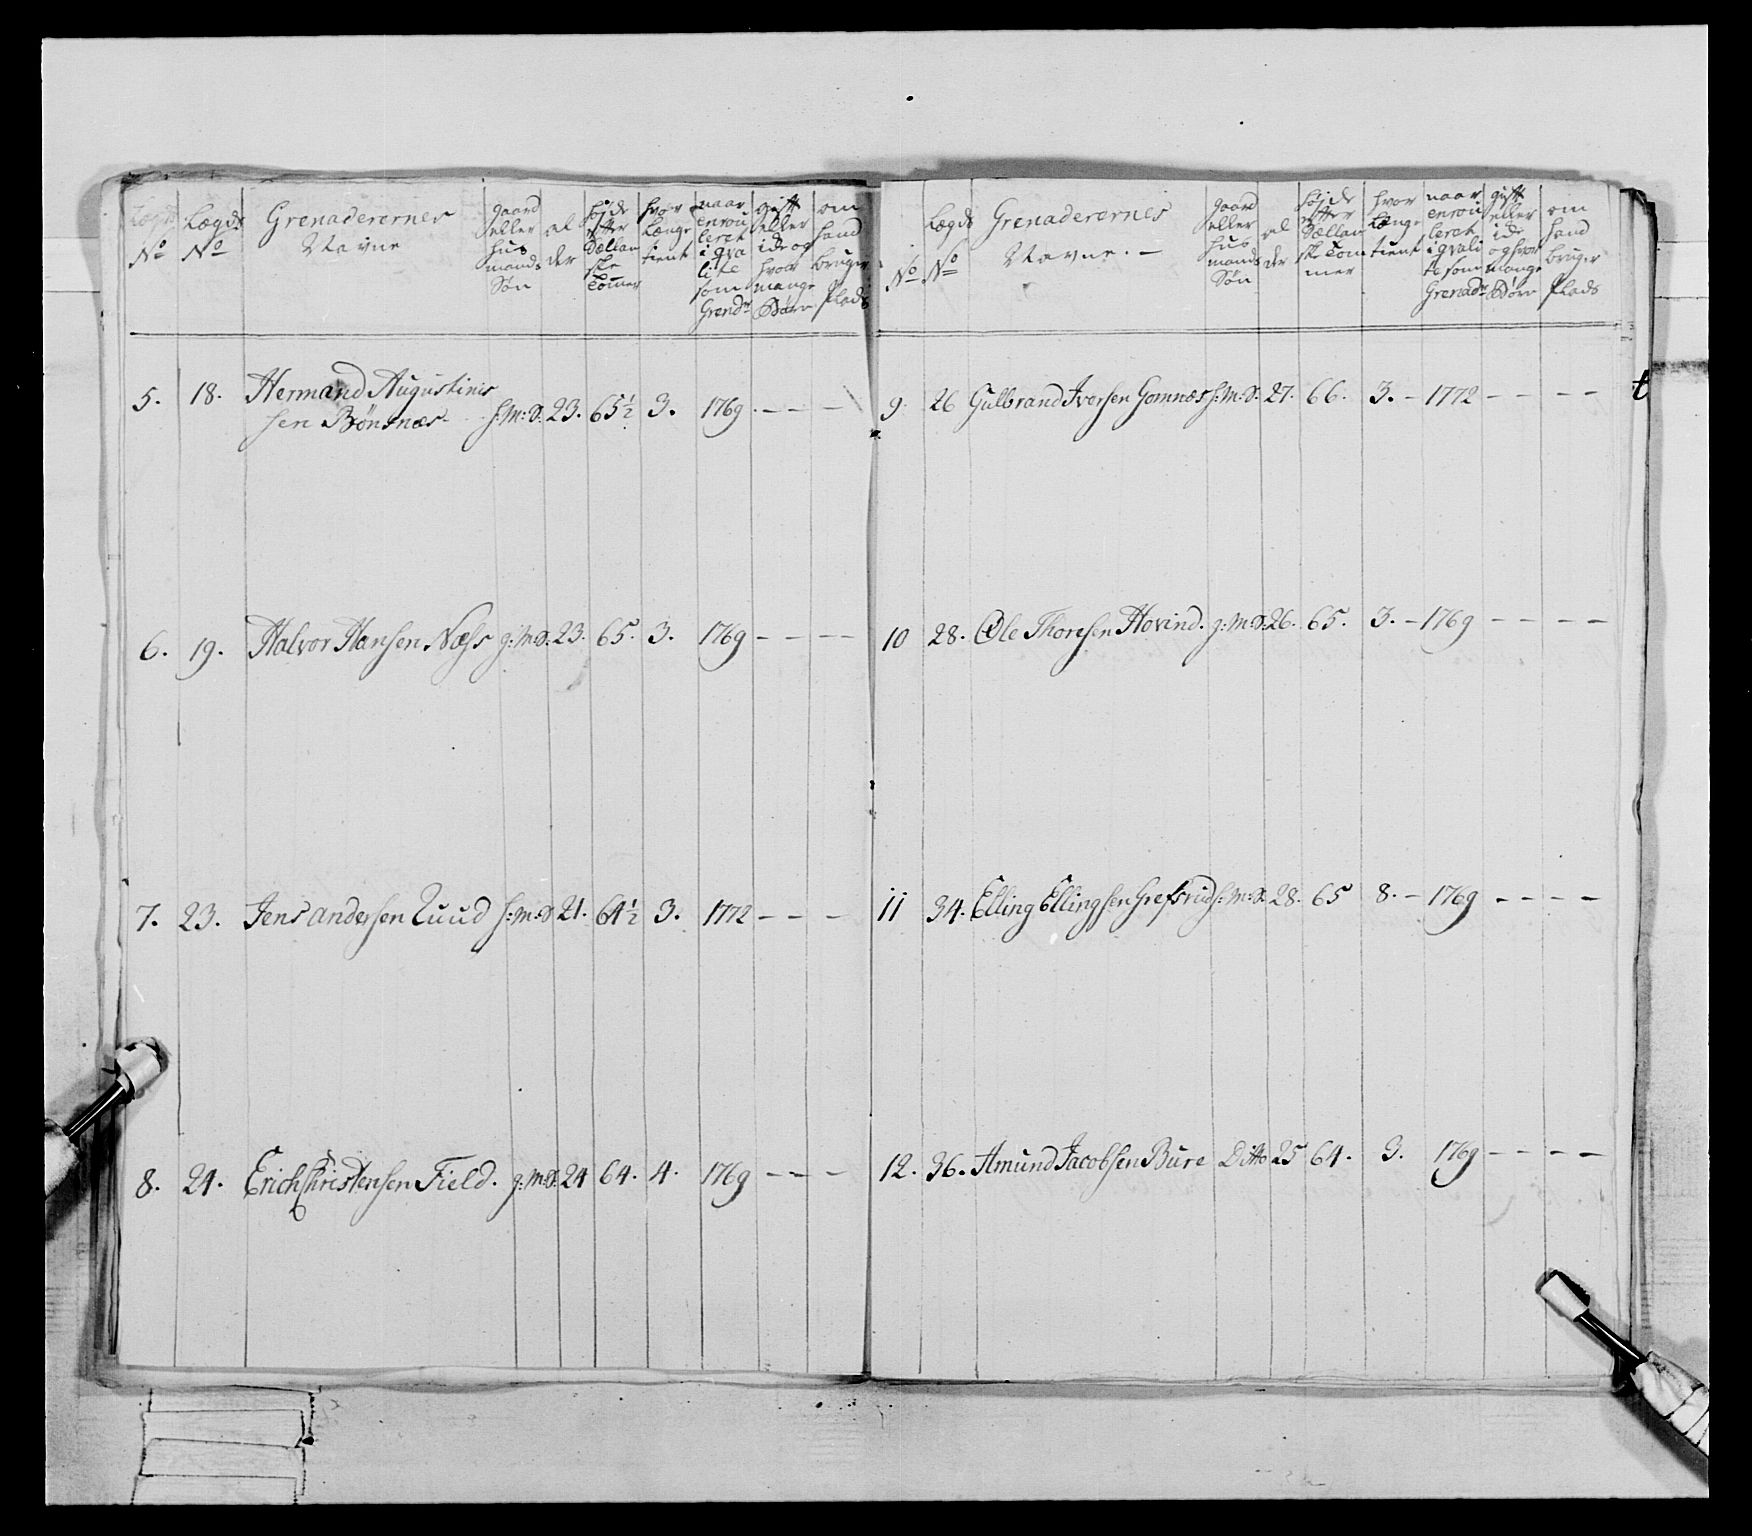 No
Lægds No
Grenaderernes Navne
gaard eller hus mands Søn
al der
højde efter Sællan ske Tom̄er
hvor længe tient
naar enrou leret i qva lite som Grendr
gift eller ide og hvor mange Børn
om hand bruger Plads
5. 18. Hermand Augustinis
sen Bönsnæs. h: M: S. 23. 65½ 3. 1769. - - -
6. 19. Halvor Hansen Næss g: M: S. 23. 65. 3. 1769 - - - -
7. 23. Jens Andersen Ruud h: M: S 21. 64½ 3. 1772 - - -
8. 24. Erich Christensen Field. g: M: S. 24 64. 4. 1769 - - -
No
Lægds No
Grenaderernes Navne. -
gaard eller hus mands Søn
al der
højde efter Sællan ske Tom mer
hvor længe tient
naar enrou leret i qvali te som Grenadr
gift eller ide og hvor mange Børn
om hand bruger Plads
9. 26 Gulbrand Iversen Gomnæs h: M: S. 27. 66. 3. - 1772 - - - - t
10 28. Ole Thoresen Hovind. g: M: S. 26. 65. 3. - 1769 - - - -
11 34. Elling Ellingsen Grefsrud h: M: S. 28. 65 8. - 1769 - - - -
12. 36. Amund Jacobsen Bure Ditto 25 64. 3. 1769 - - - -